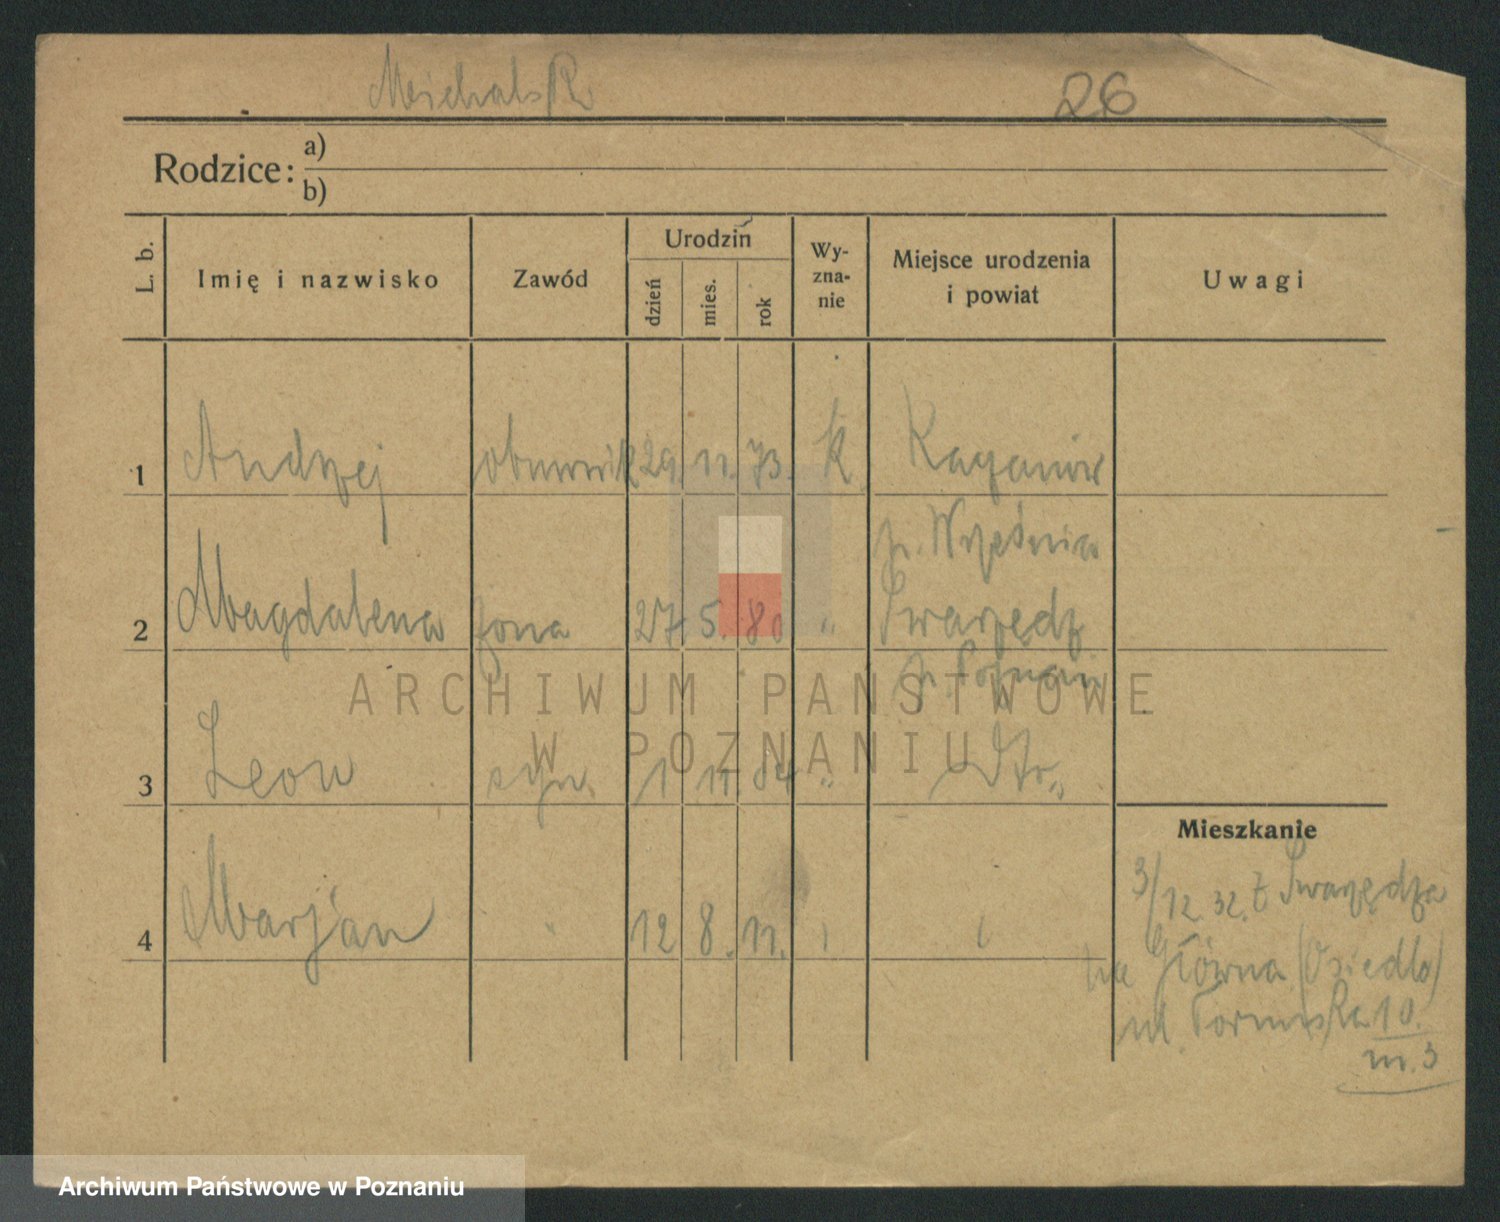 Michalak
26
Rodzice: a)
b)
L. b. Imię i nazwisko Zawód Urodzin dzień mies. rok Wy-zna-nie Miejsce urodzenia i powiat Uwagi
1 Andrzej obuwnik 29. 11. 73. k.
p. Września
2 Magdalena żona 27. 5. 80 " Swarzędz
p. Poznań
3 Leon syn. 1 11. 04 " dto.
Mieszkanie
4 Marjan " 12 8. 11.
3/12. 32. z Swarzędza
na Główna (Osiedle)
ul. Toruńska 10.
m. 3
ARCHIWUM PAŃSTWOWE
W POZNANIU
Archiwum Państwowe w Poznaniu